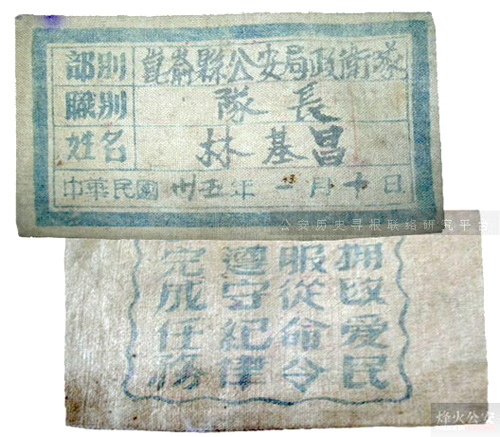 部別 崑嵛縣公安局政衛隊
職別 隊長
姓名 林基昌
中華民國 卅五年 一月十日
公安历史寻根联络研究平台
擁政愛民
服從命令
遵守紀律
完成任務
烽火公安